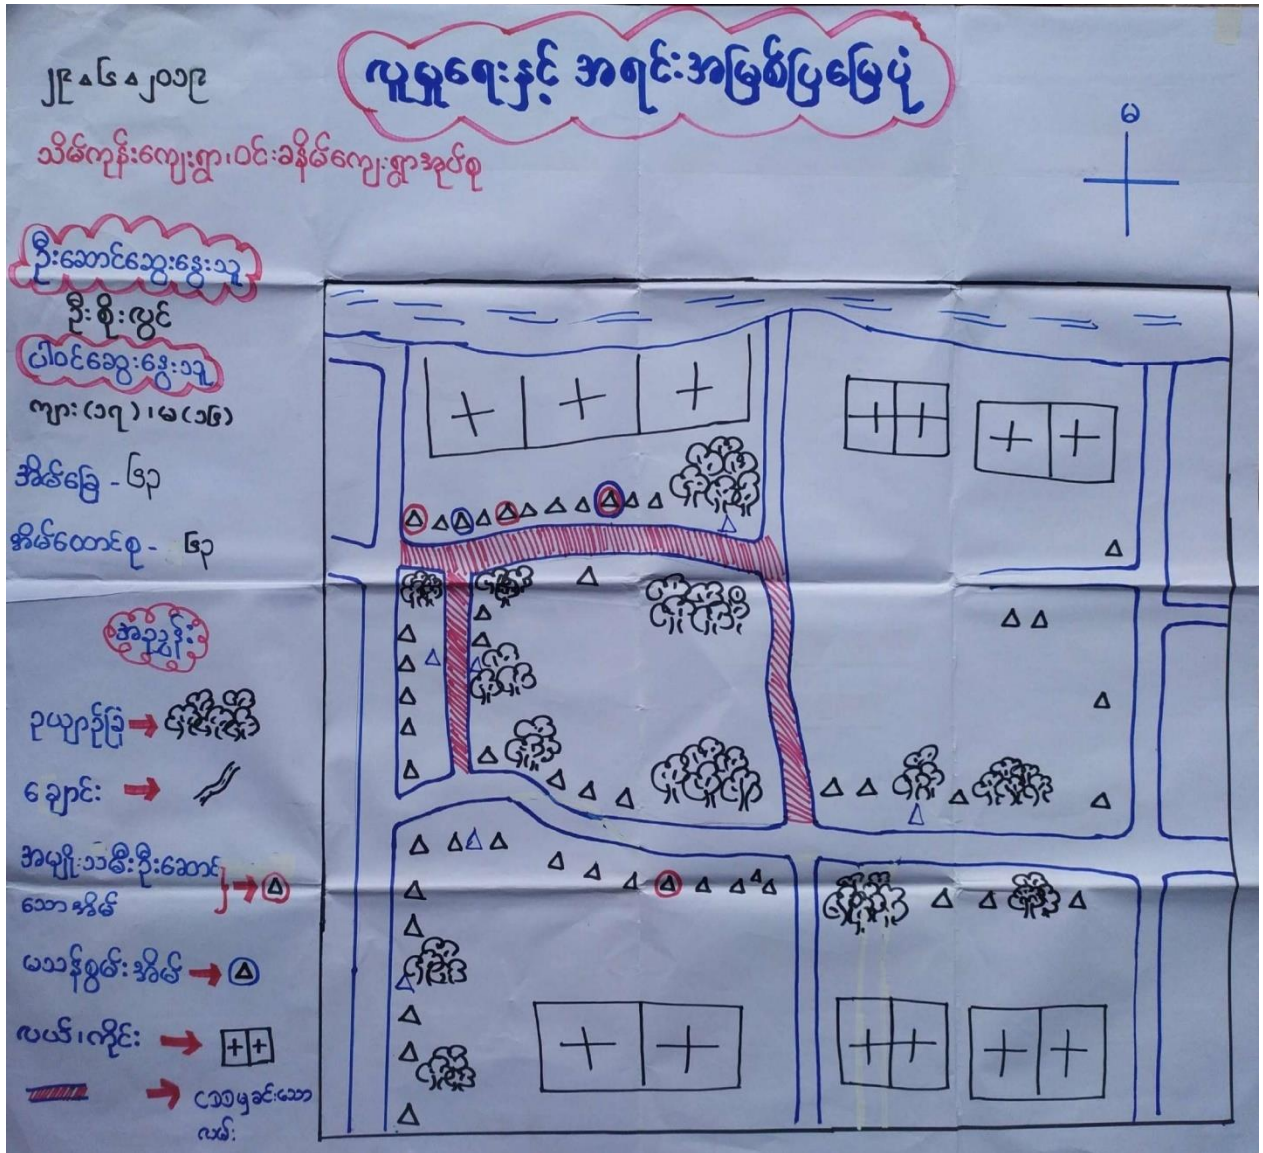 လူမှုရေးနှင့် အရင်းအမြစ်ပြမြေပုံ
၂၉-၆-၂၀၁၉
သိမ်ကုန်းကျေးရွာ၊ဝင်းခနိမ်ကျေးရွာအုပ်စု
မ
ဦးဆောင်ဆွေးနွေးသူ
ဦးစိုးလွင်
ပါဝင်ဆွေးနွေးသူ
ကျား(၁၇)၊မ(၁၆)
အိမ်ခြေ - ၆၃
အိမ်ထောင်စု - ၆၃
အညွှန်း
ဥယျာဉ်ခြံ
ချောင်း
အမျိုးသမီးဦးဆောင်
သောအိမ်
မသန်စွမ်းအိမ်
လယ်၊ကိုင်း
ငသမှခင်းသော
လမ်း